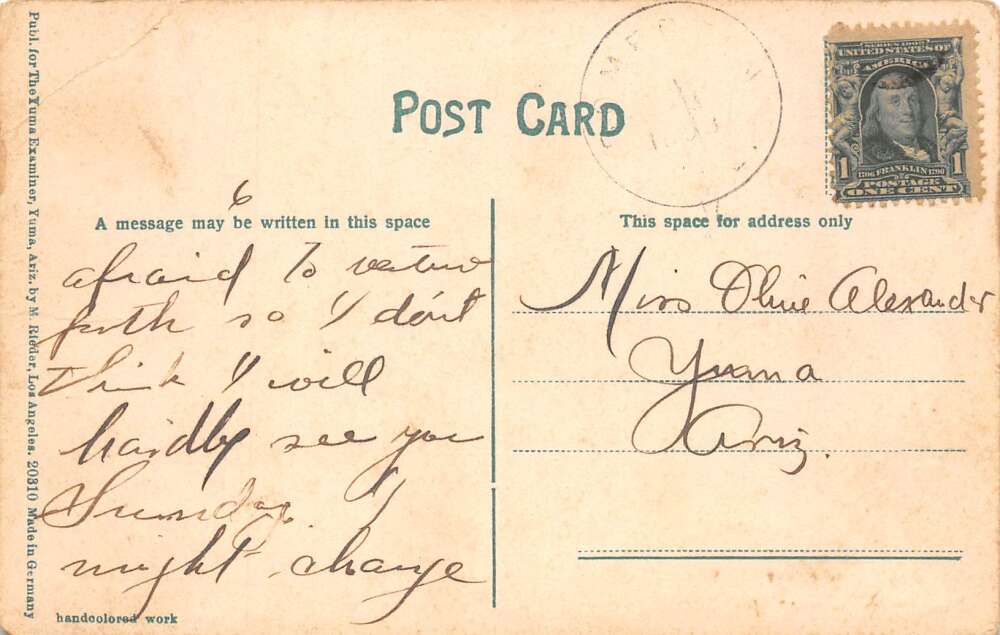 Publ. for The Yuma Examiner, Yuma, Ariz. by M. Rieder, Los Angeles. 20310 Made in Germany
POST CARD
SERIES 1902
UNITED STATES OF
AMERICA
1 1
1706 FRANKLIN 1790
POSTAGE
ONE CENT
6
A message may be written in this space
afraid to venture
forth so I don't
think I will
hardly see you
Sunday. I
might change
handcolored work
This space for address only
Miss Olive Alexander
Yuma
Ariz.